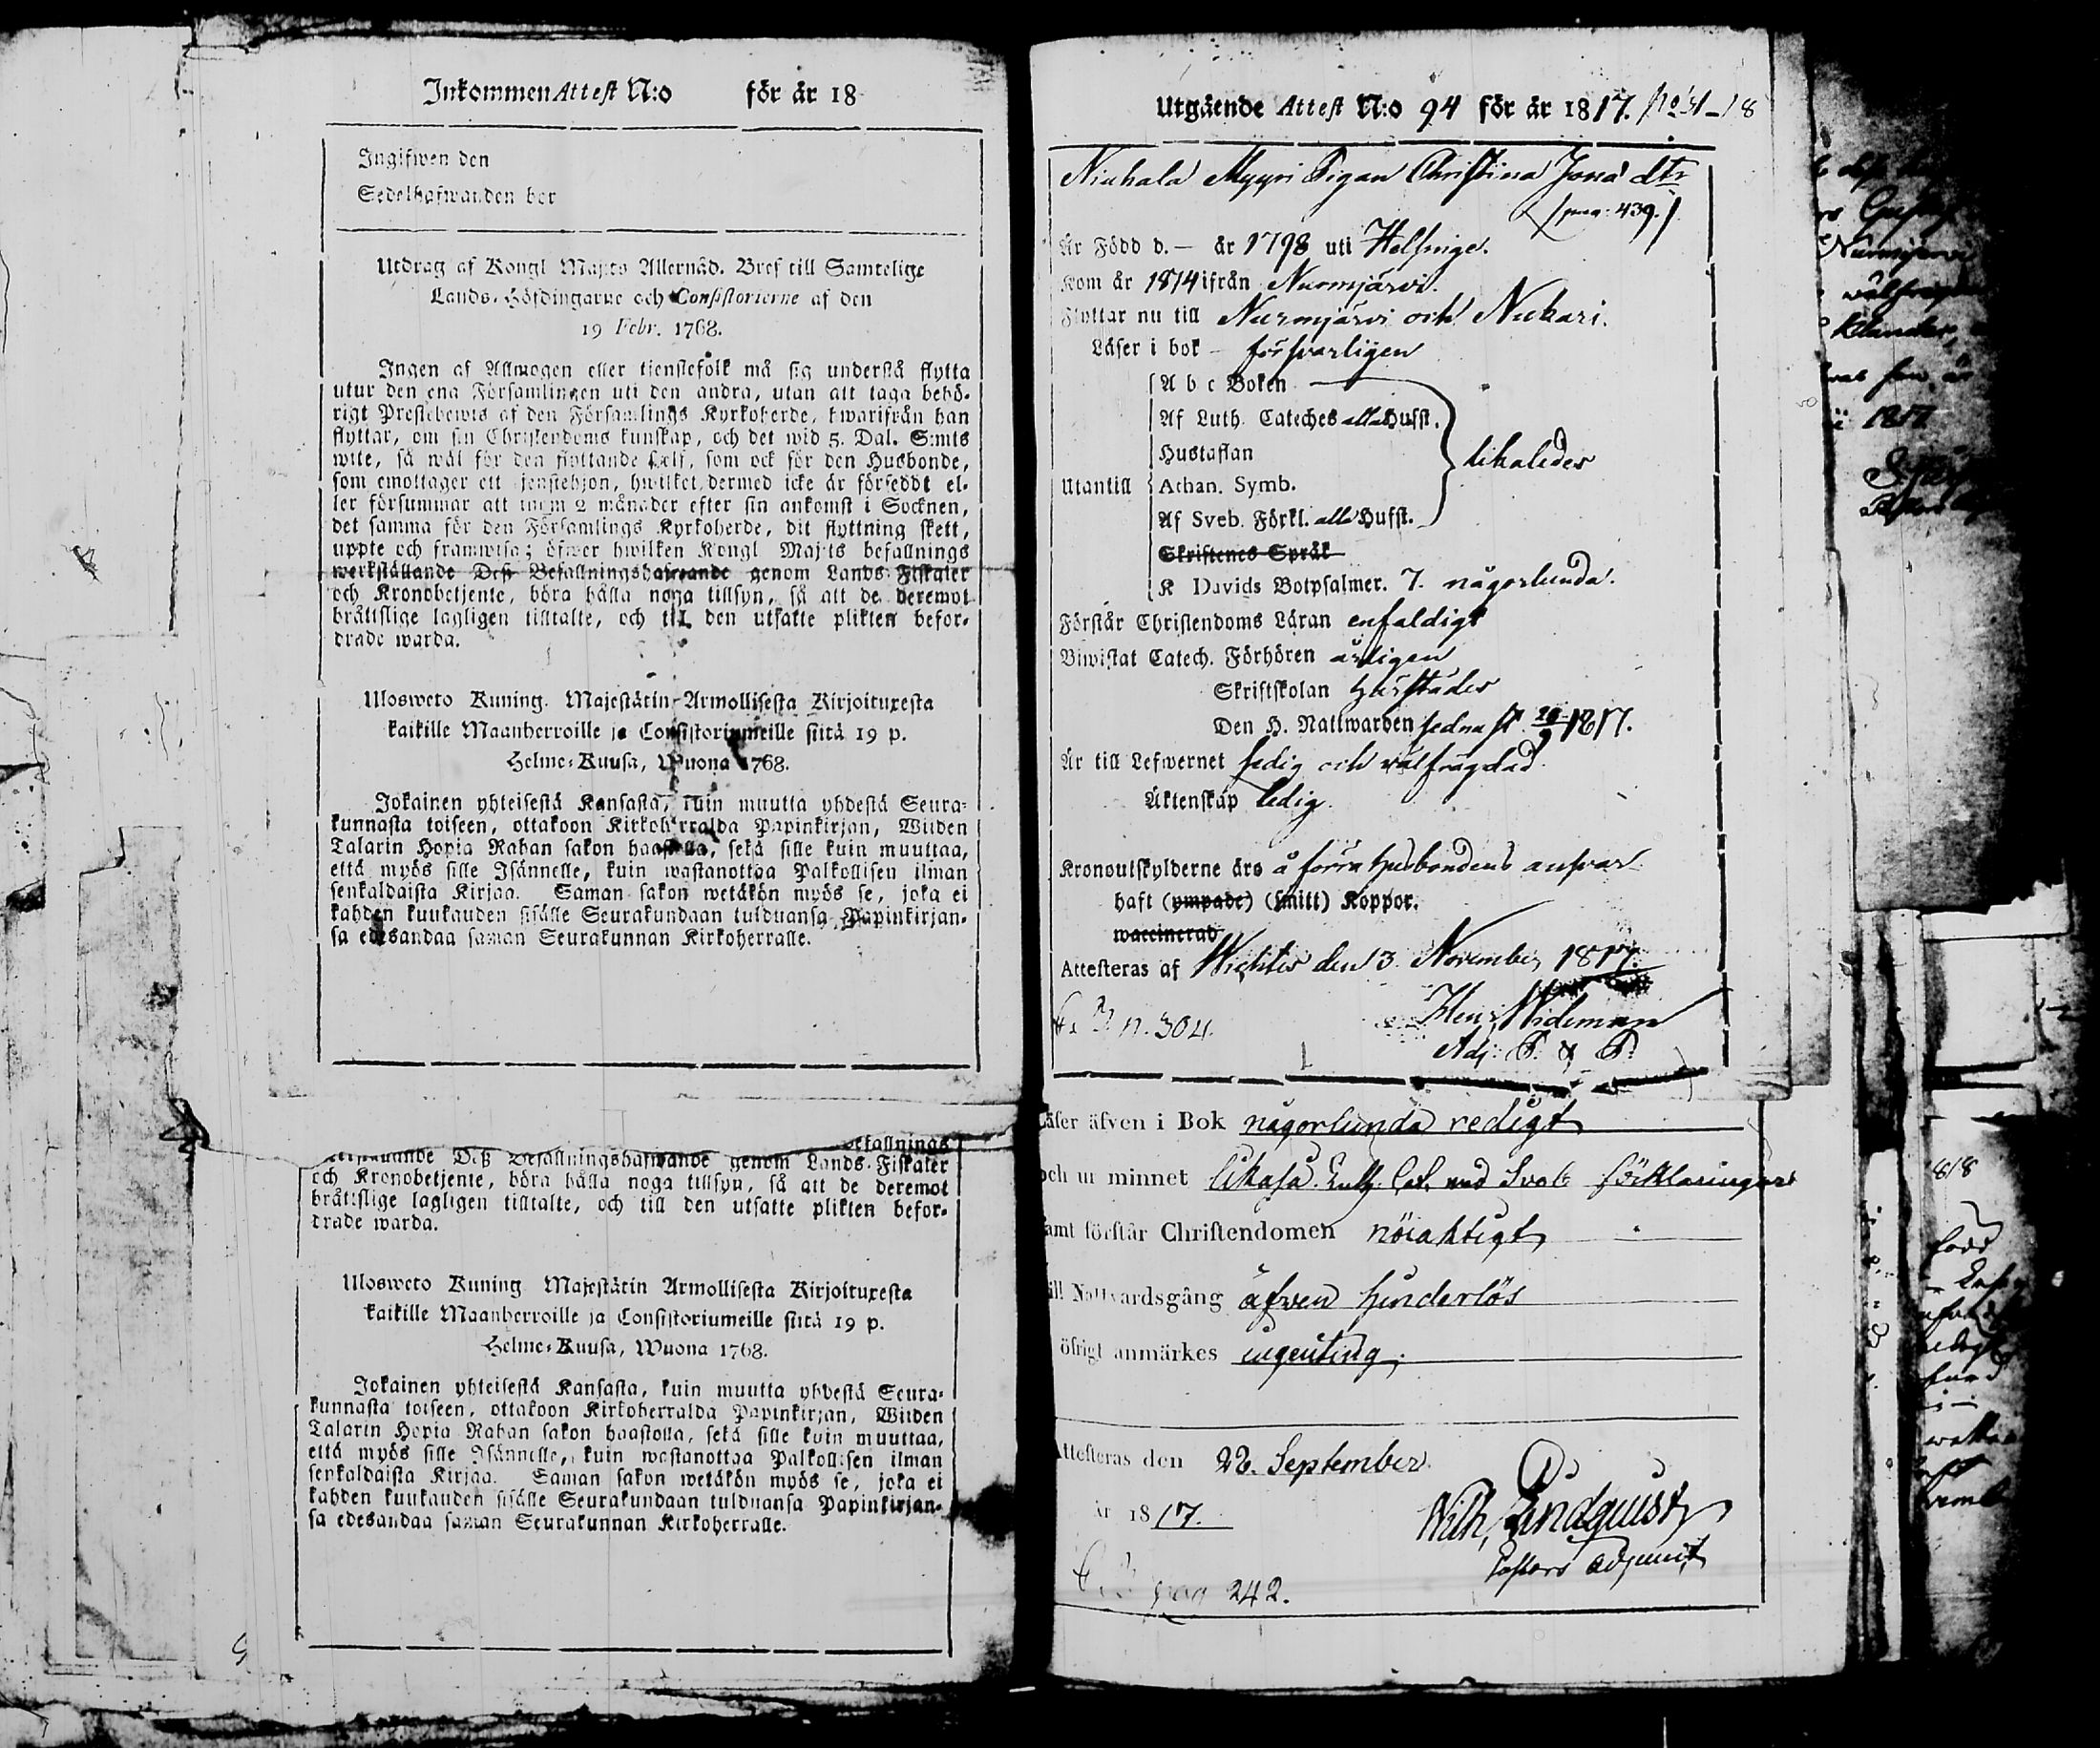 Inkommen Attest N:o för år 18
Ingifwen den
Sedelhafwanden bor
Utdrag af Kongl Maj:ts Allernåd. Bref till Samtelige
Lands-Höfdingarne och Consistorierne af den
19 Febr. 1768.
Ingen af Allmogen eller tienstefolk må sig understå flytta
utur den ena Församlingen uti den andra, utan att taga behö-
rigt Prestebewis af den Församlings Kyrkoherde, hwarifrån han
flyttar, om sin Christendoms kunskap, och det wid 5. Dal. S:mts
wite, så wäl för den flyttande sielf, som ock för den Husbonde,
som emottager ett tjenstehjon, hwilket dermed icke är försedt el-
ler försummar att inom 2 månader efter sin ankomst i Socknen,
det samma för den Församlings Kyrkoherde, dit flyttning skett,
uppte och framwisa; öfwer hwilken Kongl Maj:ts befallnings
werkställande Deß Befallningshafwande genom Lands-Fiskaler
och Kronobetjente, böra hålla noga tillsyn, så att de deremot
bråttslige lagligen tilltalte, och till den utsatte plikten befor-
drade warda.
Ulosweto Kuning. Majestätin Armollisesta Kirjoituxesta
kaikille Maanherroille ja Consistoriumeille siitä 19 p.
Helme-Kuusa, Wuona 1768.
Jokainen yhteisestä Kansasta, kuin muutta yhdestä Seura-
kunnasta toiseen, ottakoon Kirkoherralda Papinkirjan, Wiiden
Talarin Hopia Rahan sakon haastolla, sekä sille kuin muuttaa,
että myös sille Isännelle, kuin wastanottaa Palkollisen ilman
senkaldaista Kirjaa. Saman sakon wetäkön myös se, joka ei
kahden kuukauden sisälle Seurakundaan tulduansa Papinkirjan-
sa edesandaa saman Seurakunnan Kirkoherralle.
befallnings
Deß Befallningshafwande genom Lands-Fiskaler
och Kronobetjente, böra hålla noga tillsyn, så att de deremot
bråttslige lagligen tilltalte, och till den utsatte plikten befor-
drade warda.
Ulosweto Kuning Majestätin Armollisesta Kirjoituxesta
kaikille Maanherroille ja Consistoriumeille siitä 19 p.
Helme-Kuusa, Wuona 1768.
Jokainen yhteisestä Kansasta, kuin muutta yhdestä Seura-
kunnasta toiseen, ottakoon Kirkoherralda Papinkirjan, Wiiden
Talarin Hopia Rahan sakon haastolla, sekä sille kuin muuttaa,
että myös sille Isännelle, kuin wastanottaa Palkollisen ilman
senkaldaista Kirjaa. Saman sakon wetäkön myös se, joka ei
kahden kuukauden sisälle Seurakundaan tulduansa Papinkirjan-
sa edesandaa saman Seurakunnan Kirkoherralle.
Utgående Attest N:o 94 för år 1817. No 31-18
Niuhala Myyri Pigan Christina Jona dtr
/pag: 439./
Är Född d. — år 1798 uti Helsinge.
Kom år 1814 ifrån Nurmjärvi.
Flyttar nu till Nurmjärvi och Nukari.
Läser i bok - försvarligen
A b c Boken
Af Luth. Cateches alla Hufst.
Hustaflan
likaledes
Utantill Athan. Symb.
Af Sveb. Förkl. alla Hufst.
Skriftenes Språk
K Davids Botpsalmer. 7. någorlunda.
Förstår Christendoms Läran enfaldigt
Biwistat Catech. Förhören årligen
Skriftskolan härstädes
Den H. Nattwarden sednast 28/9 1817.
Är till Lefwernet sedig och välfrägdad
Äktenskap ledig.
Kronoutskylderne äro å förra husbondens answar
haft (ympade) (smitt) Koppor.
waccinerad
Attesteras af Wichtis den 3 November 1817.
p. 304.
Henr Wideman
Adj: P.
Läser äfven i Bok någorlunda redigt
och ur minnet likaså Luth. Cat. med Sveb. förklaringar
samt förstår Christendomen nöiaktigt
till Nattvardsgång äfwen hinderlös
öfrigt anmärkes ingenting.
Attesteras den 22. September
år 1817.
Wilh. Lindquist
Pastors Adjunct
pag 242.
Nurmijärvi
1817
818
född